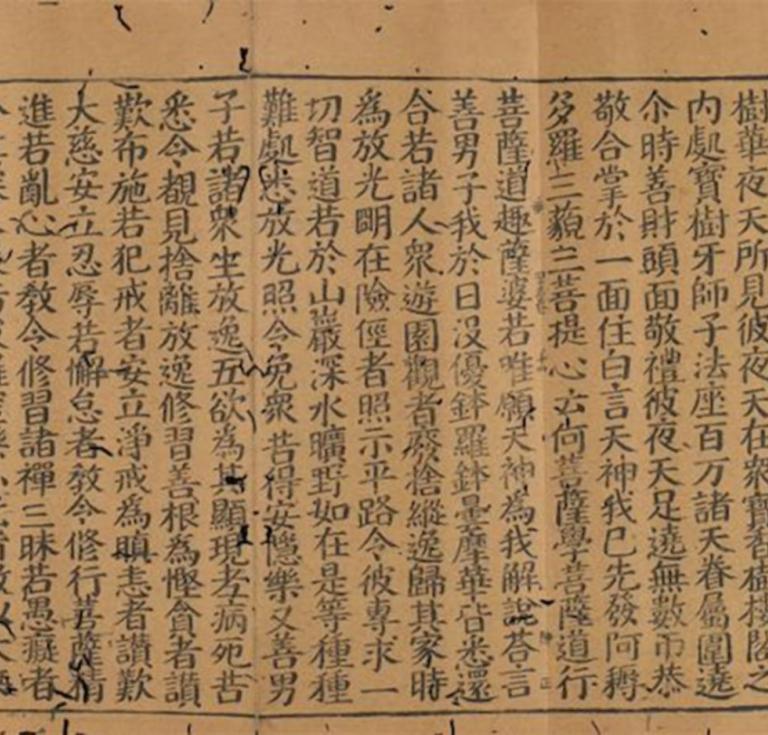 樹華夜天所見彼夜天在衆寶香樹樓閣之
內處寶樹牙師子法座百万諸天眷屬圍遶
尒時善財頭面敬禮彼夜天足遶無數帀恭
敬合掌於一面住白言天神我已先發阿耨
多羅三藐三菩提心云何菩薩學菩薩道行
菩薩道趣薩婆若唯願天神為我解說荅言
善男子我於日没優鉢羅鉢曇摩華皆悉還
合若諸人衆遊園觀者廢捨縱逸歸其家時
為放光明在險俓者照示平路令彼專求一
切智道若於山巖深水曠野如在是等種種
難處悉放光照令免衆苦得安隱樂又善男
子若諸衆生放逸五欲為其顯現老病死苦
悉令覩見捨離放逸修習善根為慳貪者讃
歎布施若犯戒者安立淨戒為瞋恚者讃歎
大慈安立忍辱若懈怠者教令修行菩薩精
進若亂心者教令修習諸禪三昧若愚癡者